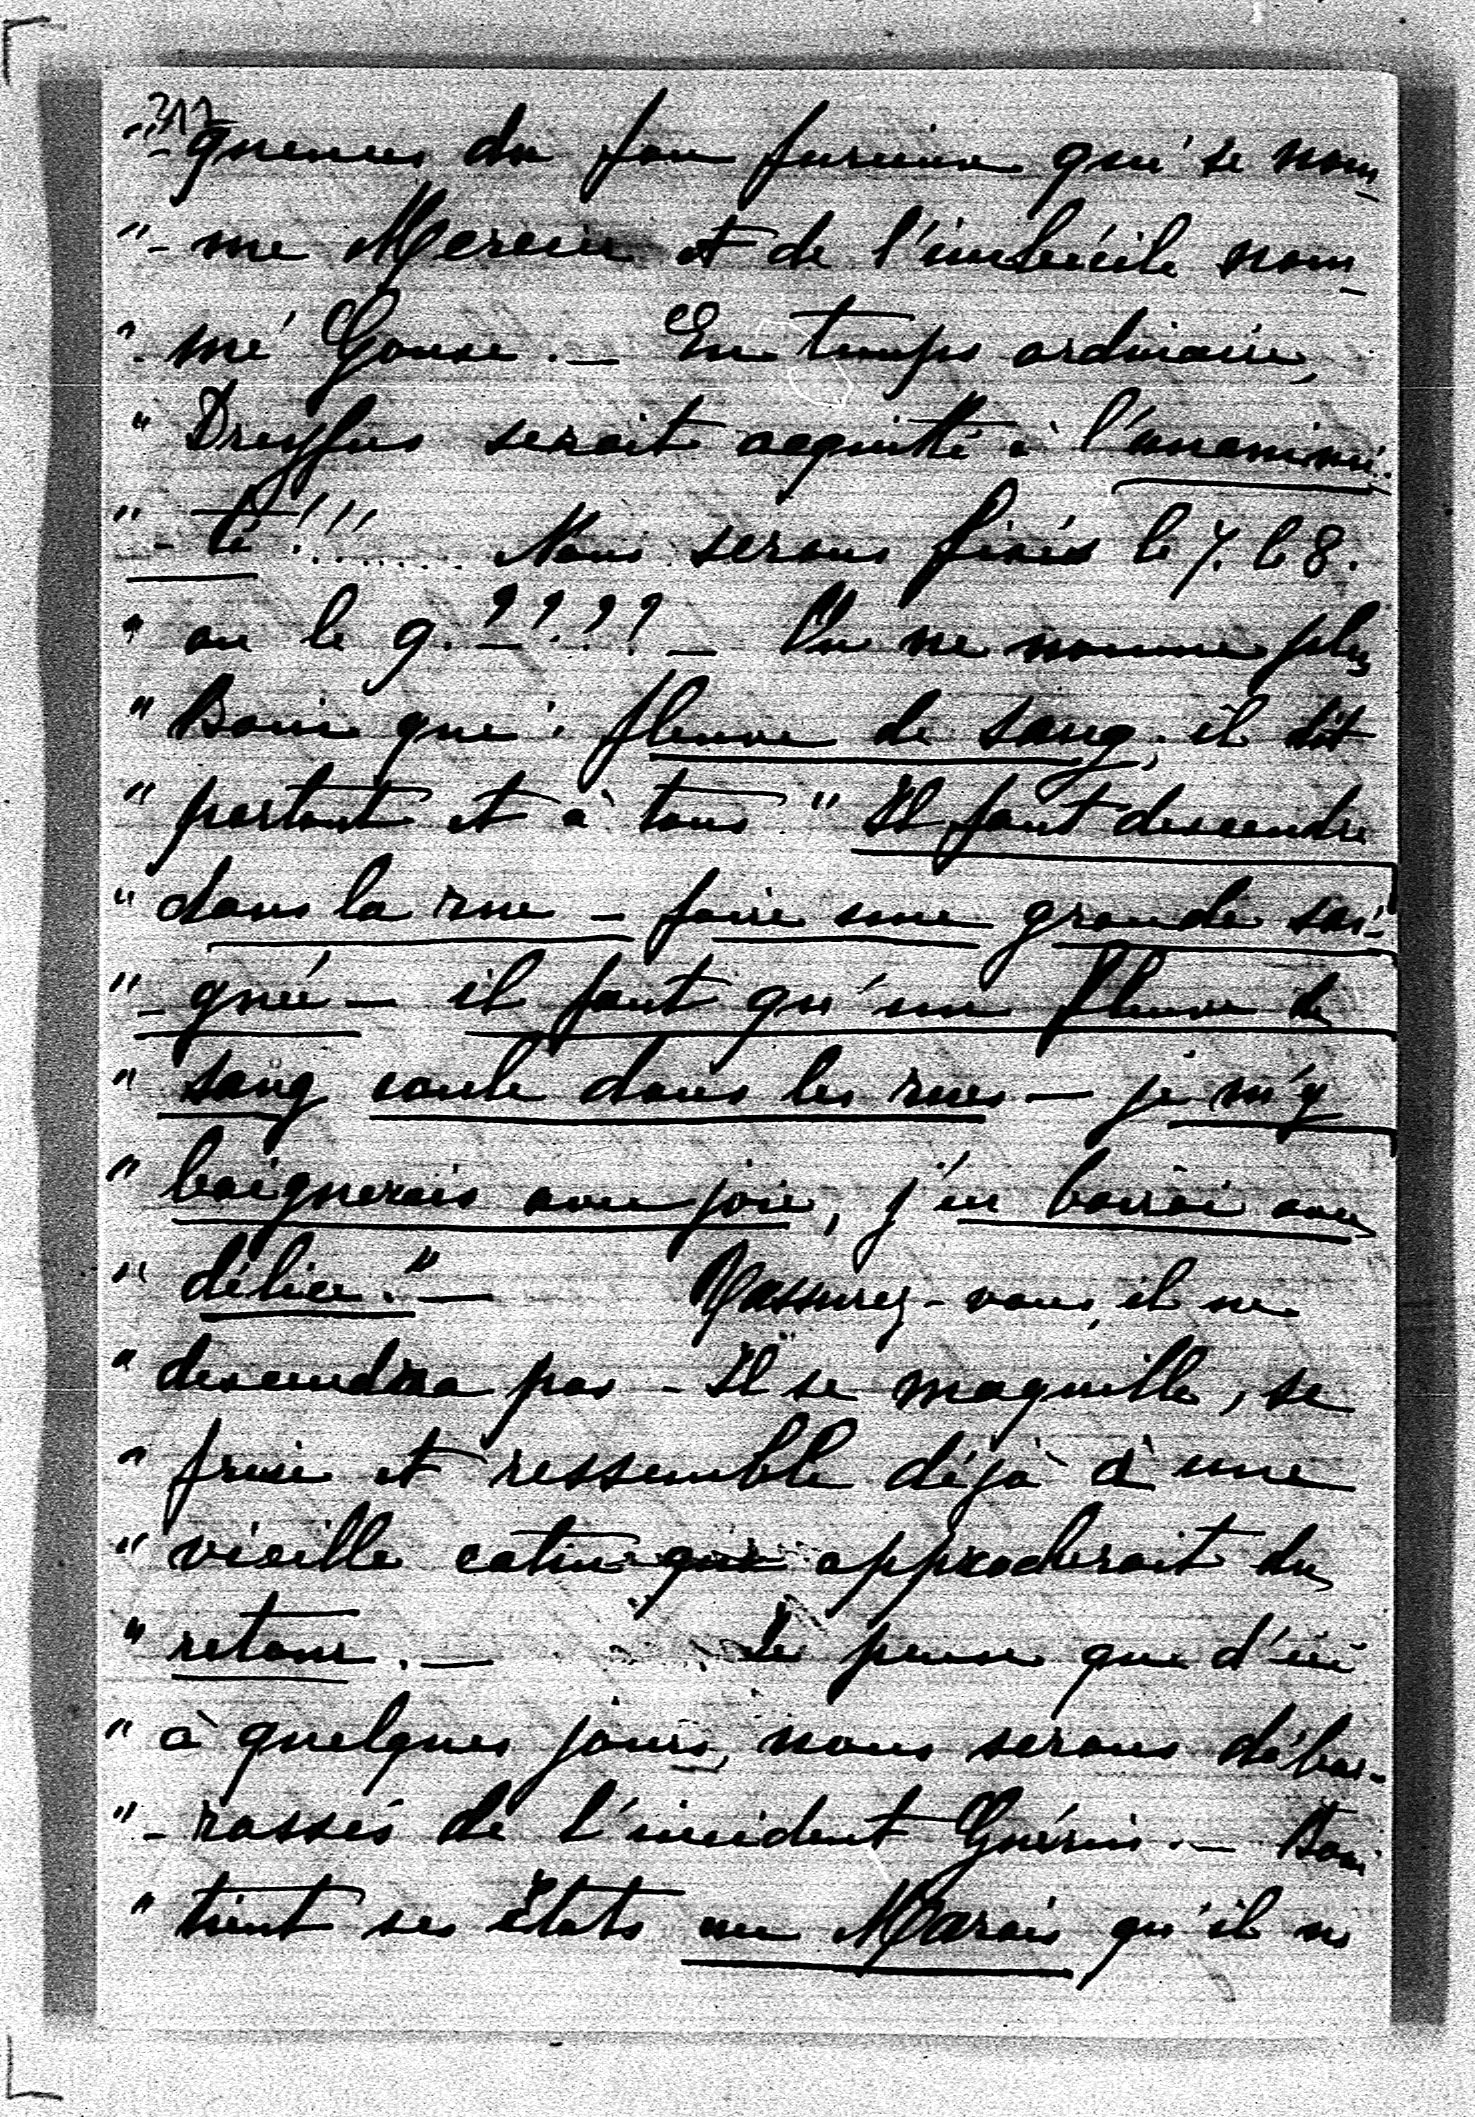 317
"- quences du fou furieux qui se nom-
"- me Mercier et de l'imbécile nom-
"- mé Gonse. — En temps ordinaire,
" Dreyfus serait acquitté à l'unanimi-
"- té !!! ....... Nous serons fixés le 7. le 8.
" ou le 9. ???? — On ne nomme plus
" Boni que : fleuve de sang, il dit
" partout et à tous " Il faut descendre
" dans la rue — faire une grande sai-
"- gnée — il faut qu'un fleuve de
" sang coule dans les rues — je m'y
" baignerais avec joie, j'en boirai avec
" délice." — Rassurez-vous, il ne
" descendra pas — Il se maquille, se
" frise et ressemble déjà à une
" vieille catin qui approcherait du
" retour. — Je pense que d'ici
" à quelques jours, nous serons débar-
"- rassés de l'incident Guérin. — Boni
" tient ses États au Marais, qu'il ne